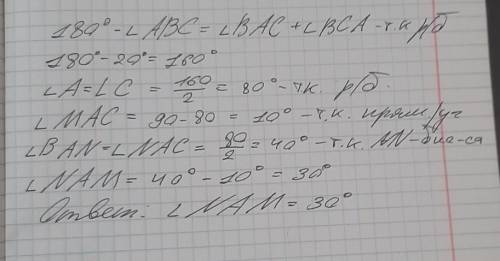 180° - ∠ABC = ∠BAC + ∠BCA - т.к р/б
180° - 20° = 160°
∠A = ∠C = 160/2 = 80° - т.к. р/б.
∠MAC = 90 - 80 = 10° - т.к. прям/уг
∠BAN = ∠NAC = 80/2 = 40° - т.к. AN - бис-са
∠NAM = 40° - 10° = 30°
Ответ: ∠NAM = 30°